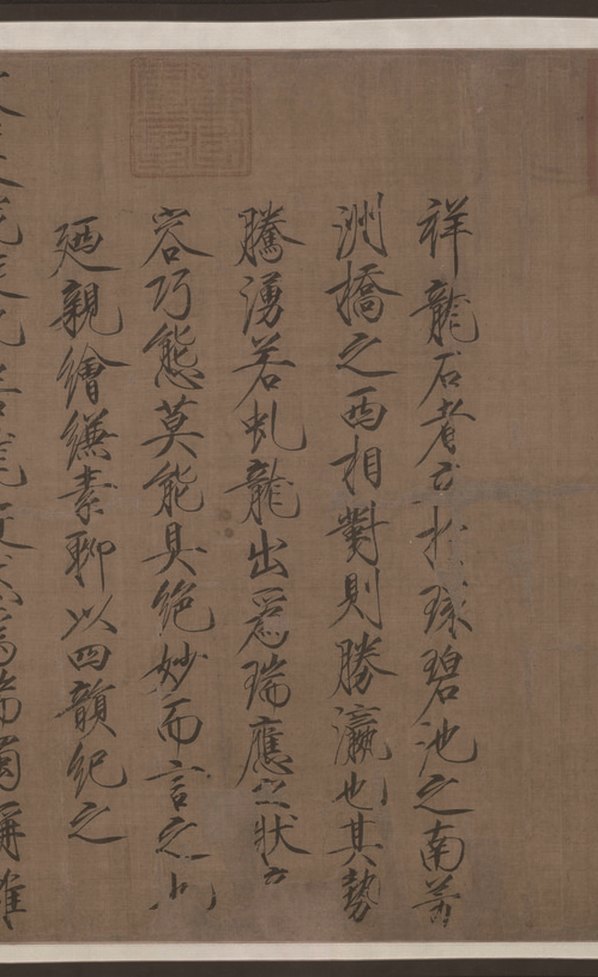 祥龍石者環碧池之南芳
洲橋之西相對則勝瀛也其勢
騰湧若虬龍出爲瑞應之狀
容巧態莫能具絶妙而言之也
廼親繪縑素聊以四韻紀之